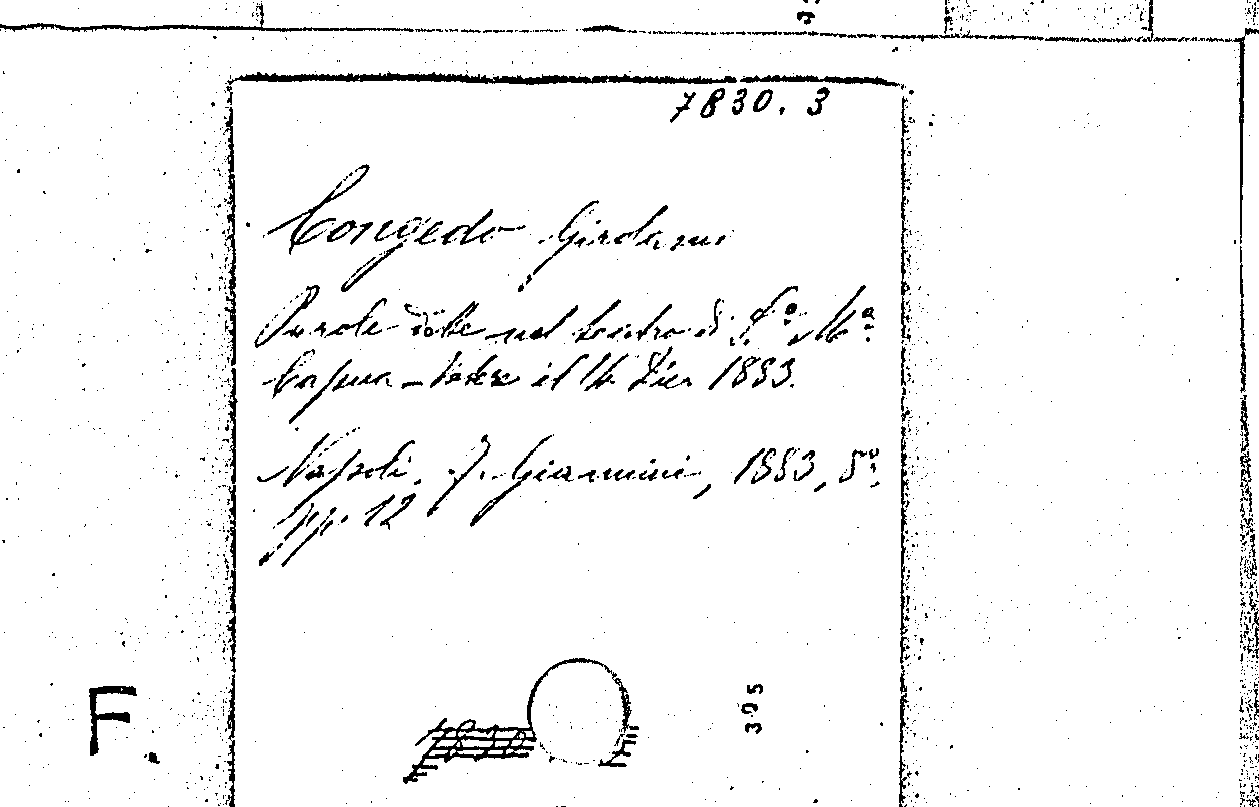 7830. 3
Congedo Girolamo
Parole dette nel teatro di S.ª M.ª
Capua - Vetere il 16 Dic 1883.
Napoli. F. Giannini, 1883, 8º.
pp. 12
7830
395
F.